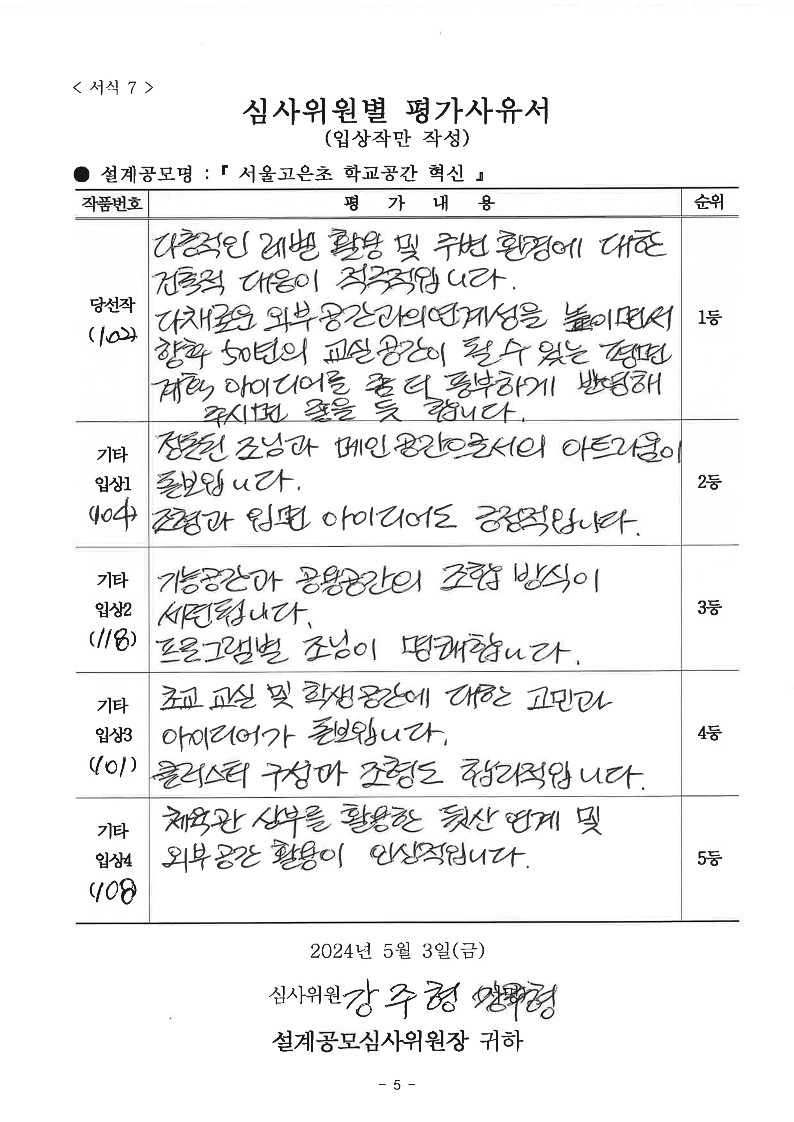 < 서식 7 >
심사위원별 평가사유서
(입상작만 작성)
● 설계공모명 : 『 서울고은초 학교공간 혁신 』
작품번호 평 가 내 용 순위
당선작
(102)
다층적인 레벨 활용 및 주변 환경에 대한
건축적 대응이 적극적입니다.
다채로운 외부공간과의 연계성을 높이면서
향후 50년의 교실공간이 될 수 있는 평면
계획 아이디어를 좀 더 풍부하게 반영해
주시면 좋을 듯 합니다.
1등
기타
입상1
(104)
정돈된 조닝과 메인공간으로서의 아트리움이
돋보입니다.
조형과 입면 아이디어도 긍정적입니다.
2등
기타
입상2
(118)
기능공간과 공용공간의 조합 방식이
세련됩니다.
프로그램별 조닝이 명쾌합니다.
3등
기타
입상3
(101)
초교 교실 및 학생공간에 대한 고민과
아이디어가 돋보입니다.
클러스터 구성과 조형도 합리적입니다.
4등
기타
입상4
(108)
체육관 상부를 활용한 뒷산 연계 및
외부공간 활용이 인상적입니다.
5등
2024년 5월 3일(금)
심사위원 강주형
설계공모심사위원장 귀하
- 5 -